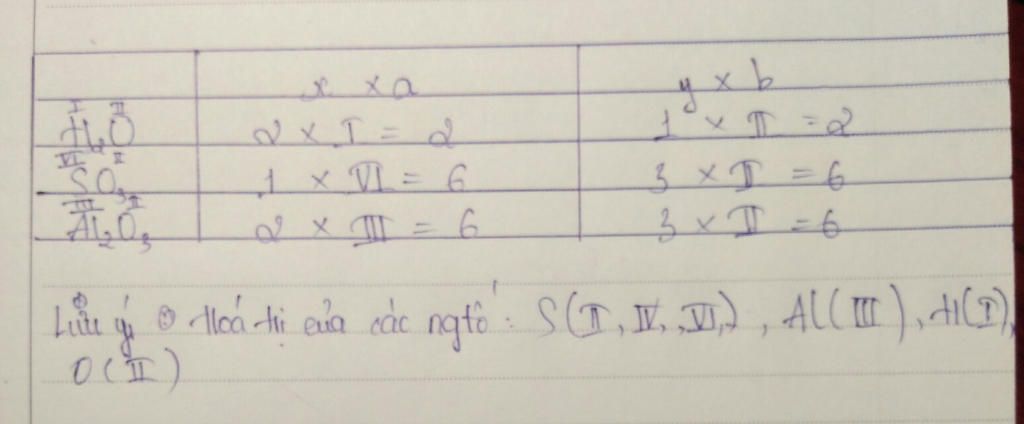 x × a y × b
I II
H₂O 2 × I = 2 1 × II = 2
VI II
SO₃ 1 × VI = 6 3 × II = 6
III II
Al₂O₃ 2 × III = 6 3 × II = 6
Lưu ý : Hoá trị của các ngtố : S(II, IV, VI), Al(III), H(I),
O(II)